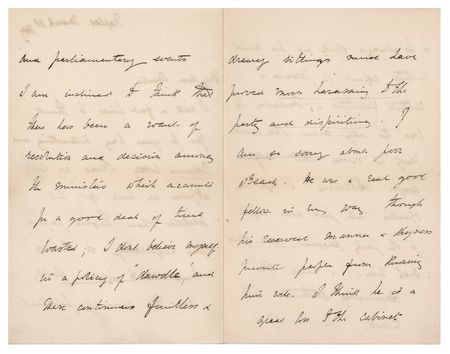 and parliamentary events
I am inclined to think that
there has been a want of
resolution and decision among
the ministers which accounts
for a good deal of time
wasted; I don't believe myself
in a policy of dawdle, and
these continuous fruitless &
dreary sittings must have
proved more harassing to the
party and dispiriting. I
am so sorry about poor
Beach. He was a real good
fellow in his way though
his reserved manner & shyness
prevented people from knowing
him well. I think he is a
great loss to the cabinet